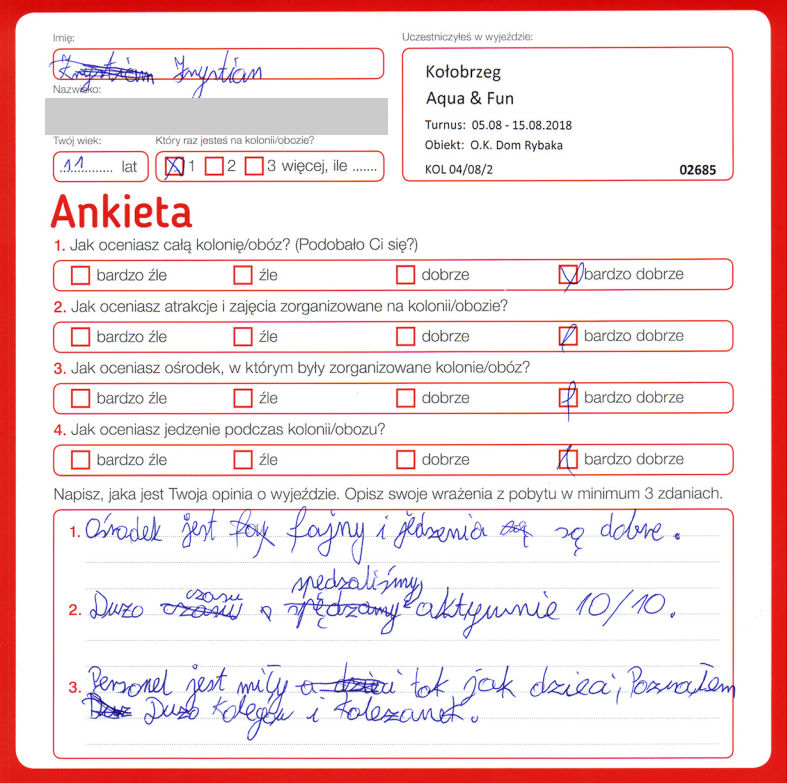 Imię:
Krystian
Nazwisko:
Twój wiek:
11 lat
Który raz jesteś na kolonii/obozie?
1 2 3 więcej, ile .......
Uczestniczyłeś w wyjeździe:
Kołobrzeg
Aqua & Fun
Turnus: 05.08 - 15.08.2018
Obiekt: O.K. Dom Rybaka
KOL 04/08/2 02685
Ankieta
1. Jak oceniasz całą kolonię/obóz? (Podobało Ci się?)
bardzo źle źle dobrze bardzo dobrze
2. Jak oceniasz atrakcje i zajęcia zorganizowane na kolonii/obozie?
bardzo źle źle dobrze bardzo dobrze
3. Jak oceniasz ośrodek, w którym były zorganizowane kolonie/obóz?
bardzo źle źle dobrze bardzo dobrze
4. Jak oceniasz jedzenie podczas kolonii/obozu?
bardzo źle źle dobrze bardzo dobrze
Napisz, jaka jest Twoja opinia o wyjeździe. Opisz swoje wrażenia z pobytu w minimum 3 zdaniach.
1. Ośrodek jest fajny i jedzenia są dobre.
2. Dużo czasu spędzaliśmy aktywnie 10/10.
3. Personel jest miły tak jak dzieci, Poznałem
Dużo kolegów i koleżanek.